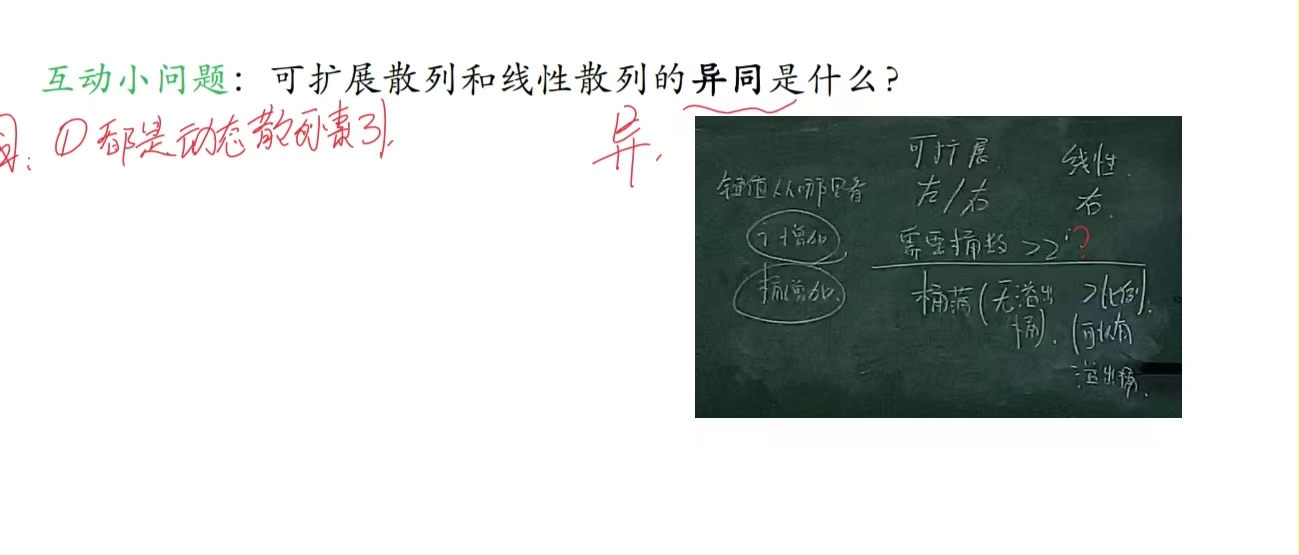 互动小问题：可扩展散列和线性散列的异同是什么？
同：①都是动态散列索引.
异.
可扩展 线性.
键值从哪里看 左/右 右.
i增加, 需要桶数 >2^i ?
桶增加. 桶满(无溢出桶). >比例.
(可以有溢出桶.